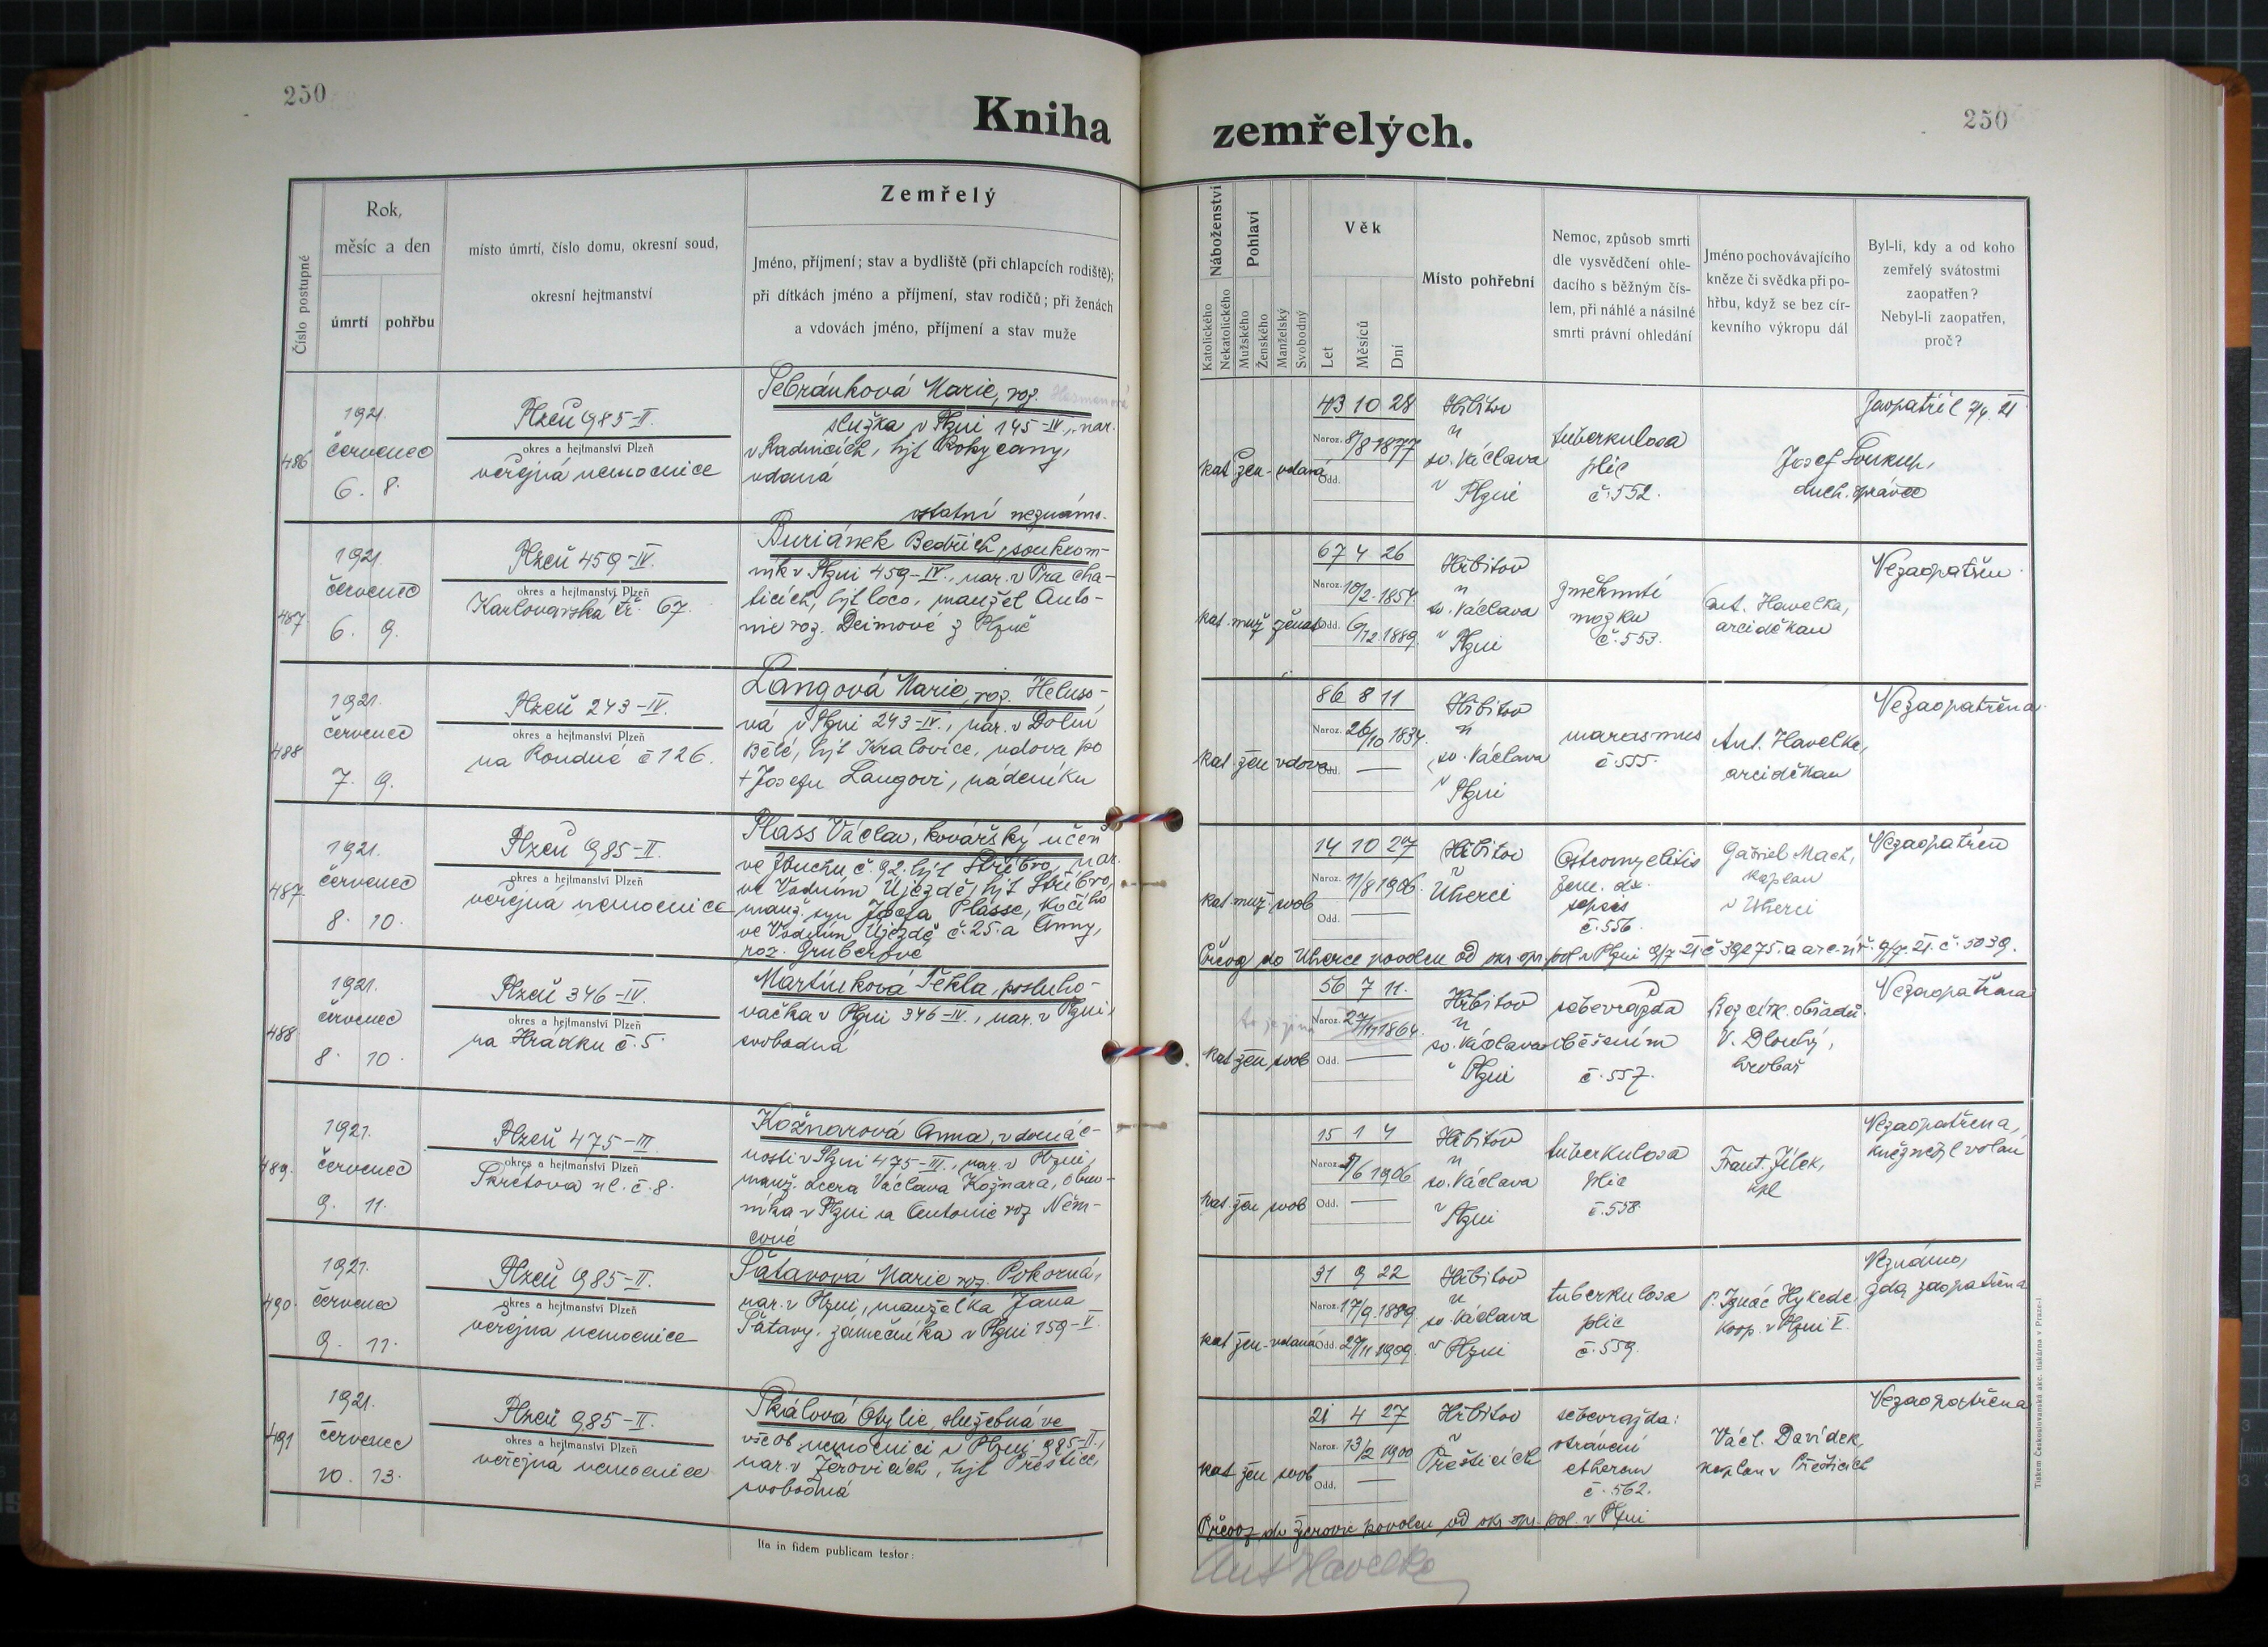 250
250
Kniha zemřelých.
Číslo postupné
Rok,
měsíc a den
úmrtí
pohřbu
místo úmrtí, číslo domu, okresní soud,
okresní hejtmanství
Zemřelý
Jméno, příjmení; stav a bydliště (při chlapcích rodiště);
při dítkách jméno a příjmení, stav rodičů; při ženách
a vdovách jméno, příjmení a stav muže
Náboženství
Katolického
Nekatolického
Pohlaví
Mužského
Ženského
Manželský
Svobodný
Věk
Let
Měsíců
Dní
Místo pohřební
Nemoc, způsob smrti
dle vysvědčení ohle-
dacího s běžným čís-
lem, při náhlé a násilné
smrti právní ohledání
Jméno pochovávajícího
kněze či svědka při po-
hřbu, když se bez cír-
kevního výkropu dál
Byl-li, kdy a od koho
zemřelý svátostmi
zaopatřen?
Nebyl-li zaopatřen,
proč?
486
1921.
červenec
6. 8.
Plzeň 985-II.
okres a hejtmanství Plzeň
veřejná nemocnice
Sebránková Marie, roz. Hesmanová
služka v Plzni 145-IV., nar.
v Radnicích, hjt Rokycany,
vdaná
ostatní neznámo.
kat žen-vdaná
43 10 28
Naroz. 8/8 1877
Odd.
Hřbitov
u
sv. Václava
v Plzni
tuberkulosa
plic
č. 552.
Josef Soukup,
duch. správce
Zaopatřil 7/7. 21
487.
1921.
červenec
6. 9.
Plzeň 459-IV.
okres a hejtmanství Plzeň
Karlovarská tř. 67.
Buriánek Bedřich, soukrom-
ník v Plzni 459-IV., nar. v Pracha-
ticích, hjt loco, manžel Anto-
nie roz. Deimové z Plzně
kat. muž ženat
67 4 26
Naroz. 10/2. 1854
Odd. 6/12 1889.
Hřbitov
u
sv. Václava
v Plzni
změknutí
mozku
č. 553.
Ant. Havelka,
arciděkan
Nezaopatřen
488
1921.
červenec
7. 9.
Plzeň 243-IV.
okres a hejtmanství Plzeň
na Roudné č 126.
Langová Marie, roz. Heluso-
vá v Plzni 243-IV., nar. v Dolní
Bělé, hjt Kralovice, vdova po
+ Josefu Langovi, nádeníku
kat. žen vdova
86 8 11
Naroz. 26/10 1834.
Odd. —
Hřbitov
u
sv. Václava
v Plzni
marasmus
č 555.
Ant. Havelka,
arciděkan
Nezaopatřena
487.
1921.
červenec
8. 10.
Plzeň 985-II.
okres a hejtmanství Plzeň
veřejná nemocnice
Plass Václav, kovářský učeň
ve Zbuchu č. 92. hjt Stříbro, nar.
ve Vodním Újezdě, hjt Stříbro,
manž. syn Josefa Plasse, kočího
ve Vodním Újezdě č. 25. a Anny,
roz. Gruberové
kat. muž svob
14 10 27
Naroz. 11/8 1906.
Odd. —
Hřbitov
v
Úherci
Osteomyelitis
fem. dx.
sepsis
č. 556.
Gabriel Mach,
kaplan
v Úherci
Nezaopatřen
Převoz do Úherce povolen od okr spr pol v Plzni 9/7 21 č 39275. a arc. úř. 9/7. 21. č. 5039.
488
1921.
červenec
8. 10.
Plzeň 346-IV.
okres a hejtmanství Plzeň
na Hrádku č. 5.
Martínková Tekla, posluho-
vačka v Plzni 346-IV., nar. v Plzni,
svobodná
kat žen svob
56 7 11.
Naroz. 27/11 1864.
Odd. —
Hřbitov
u
sv. Václava
v Plzni
sebevražda
oběšením
č. 557.
Bez círk. obřadů.
V. Dlouhý,
hrobař
Nezaopatřena
489.
1921.
červenec
9. 11.
Plzeň 475-III
okres a hejtmanství Plzeň
Skrétova ul. č. 8.
Kožnarová Anna, v domác-
nosti v Plzni 475-III., nar. v Plzni,
manž. dcera Václava Kožnara, obuv-
níka v Plzni a Antonie roz Něm-
cové
kat. žen svob
15 1 4
Naroz. 5/6 1906.
Odd. —
Hřbitov
u
sv. Václava
v Plzni
tuberkulosa
plic
č. 558
Frant. Jílek,
kpl
Nezaopatřena,
kněz nebyl volán
490.
1921.
červenec
9. 11.
Plzeň 985-II.
okres a hejtmanství Plzeň
veřejná nemocnice
Šatavová Marie roz. Pokorná,
nar. v Plzni, manželka Jana
Šatavy, zámečníka v Plzni 159-V.
kat žen-vdaná
31 9 22
Naroz. 17/9. 1889.
Odd. 27/11 1909.
Hřbitov
u
sv. Václava
v Plzni
tuberkulosa
plic
č. 559.
P. Ignác Hykede
koop. v Plzni V.
Neznámo,
zda zaopatřena
491
1921.
červenec
10. 13.
Plzeň 985-II.
okres a hejtmanství Plzeň
veřejná nemocnice
Skálová Otylie, služebná ve
všeob nemocnici v Plzni 985-II.,
nar. v Žerovicích, hjt Přeštice,
svobodná
kat žen svob
21 4 27
Naroz. 13/2 1900
Odd. —
Hřbitov
v
Přešticích
sebevražda:
otrávení
etherem
č. 562.
Václ. Davídek,
kaplan v Přešticích
Nezaopatřena
Převoz do Žerovic povolen od okr spr. pol. v Plzni
Ita in fidem publicam testor:
Ant Havelka
Tiskem Československá akc. tiskárna v Praze-I